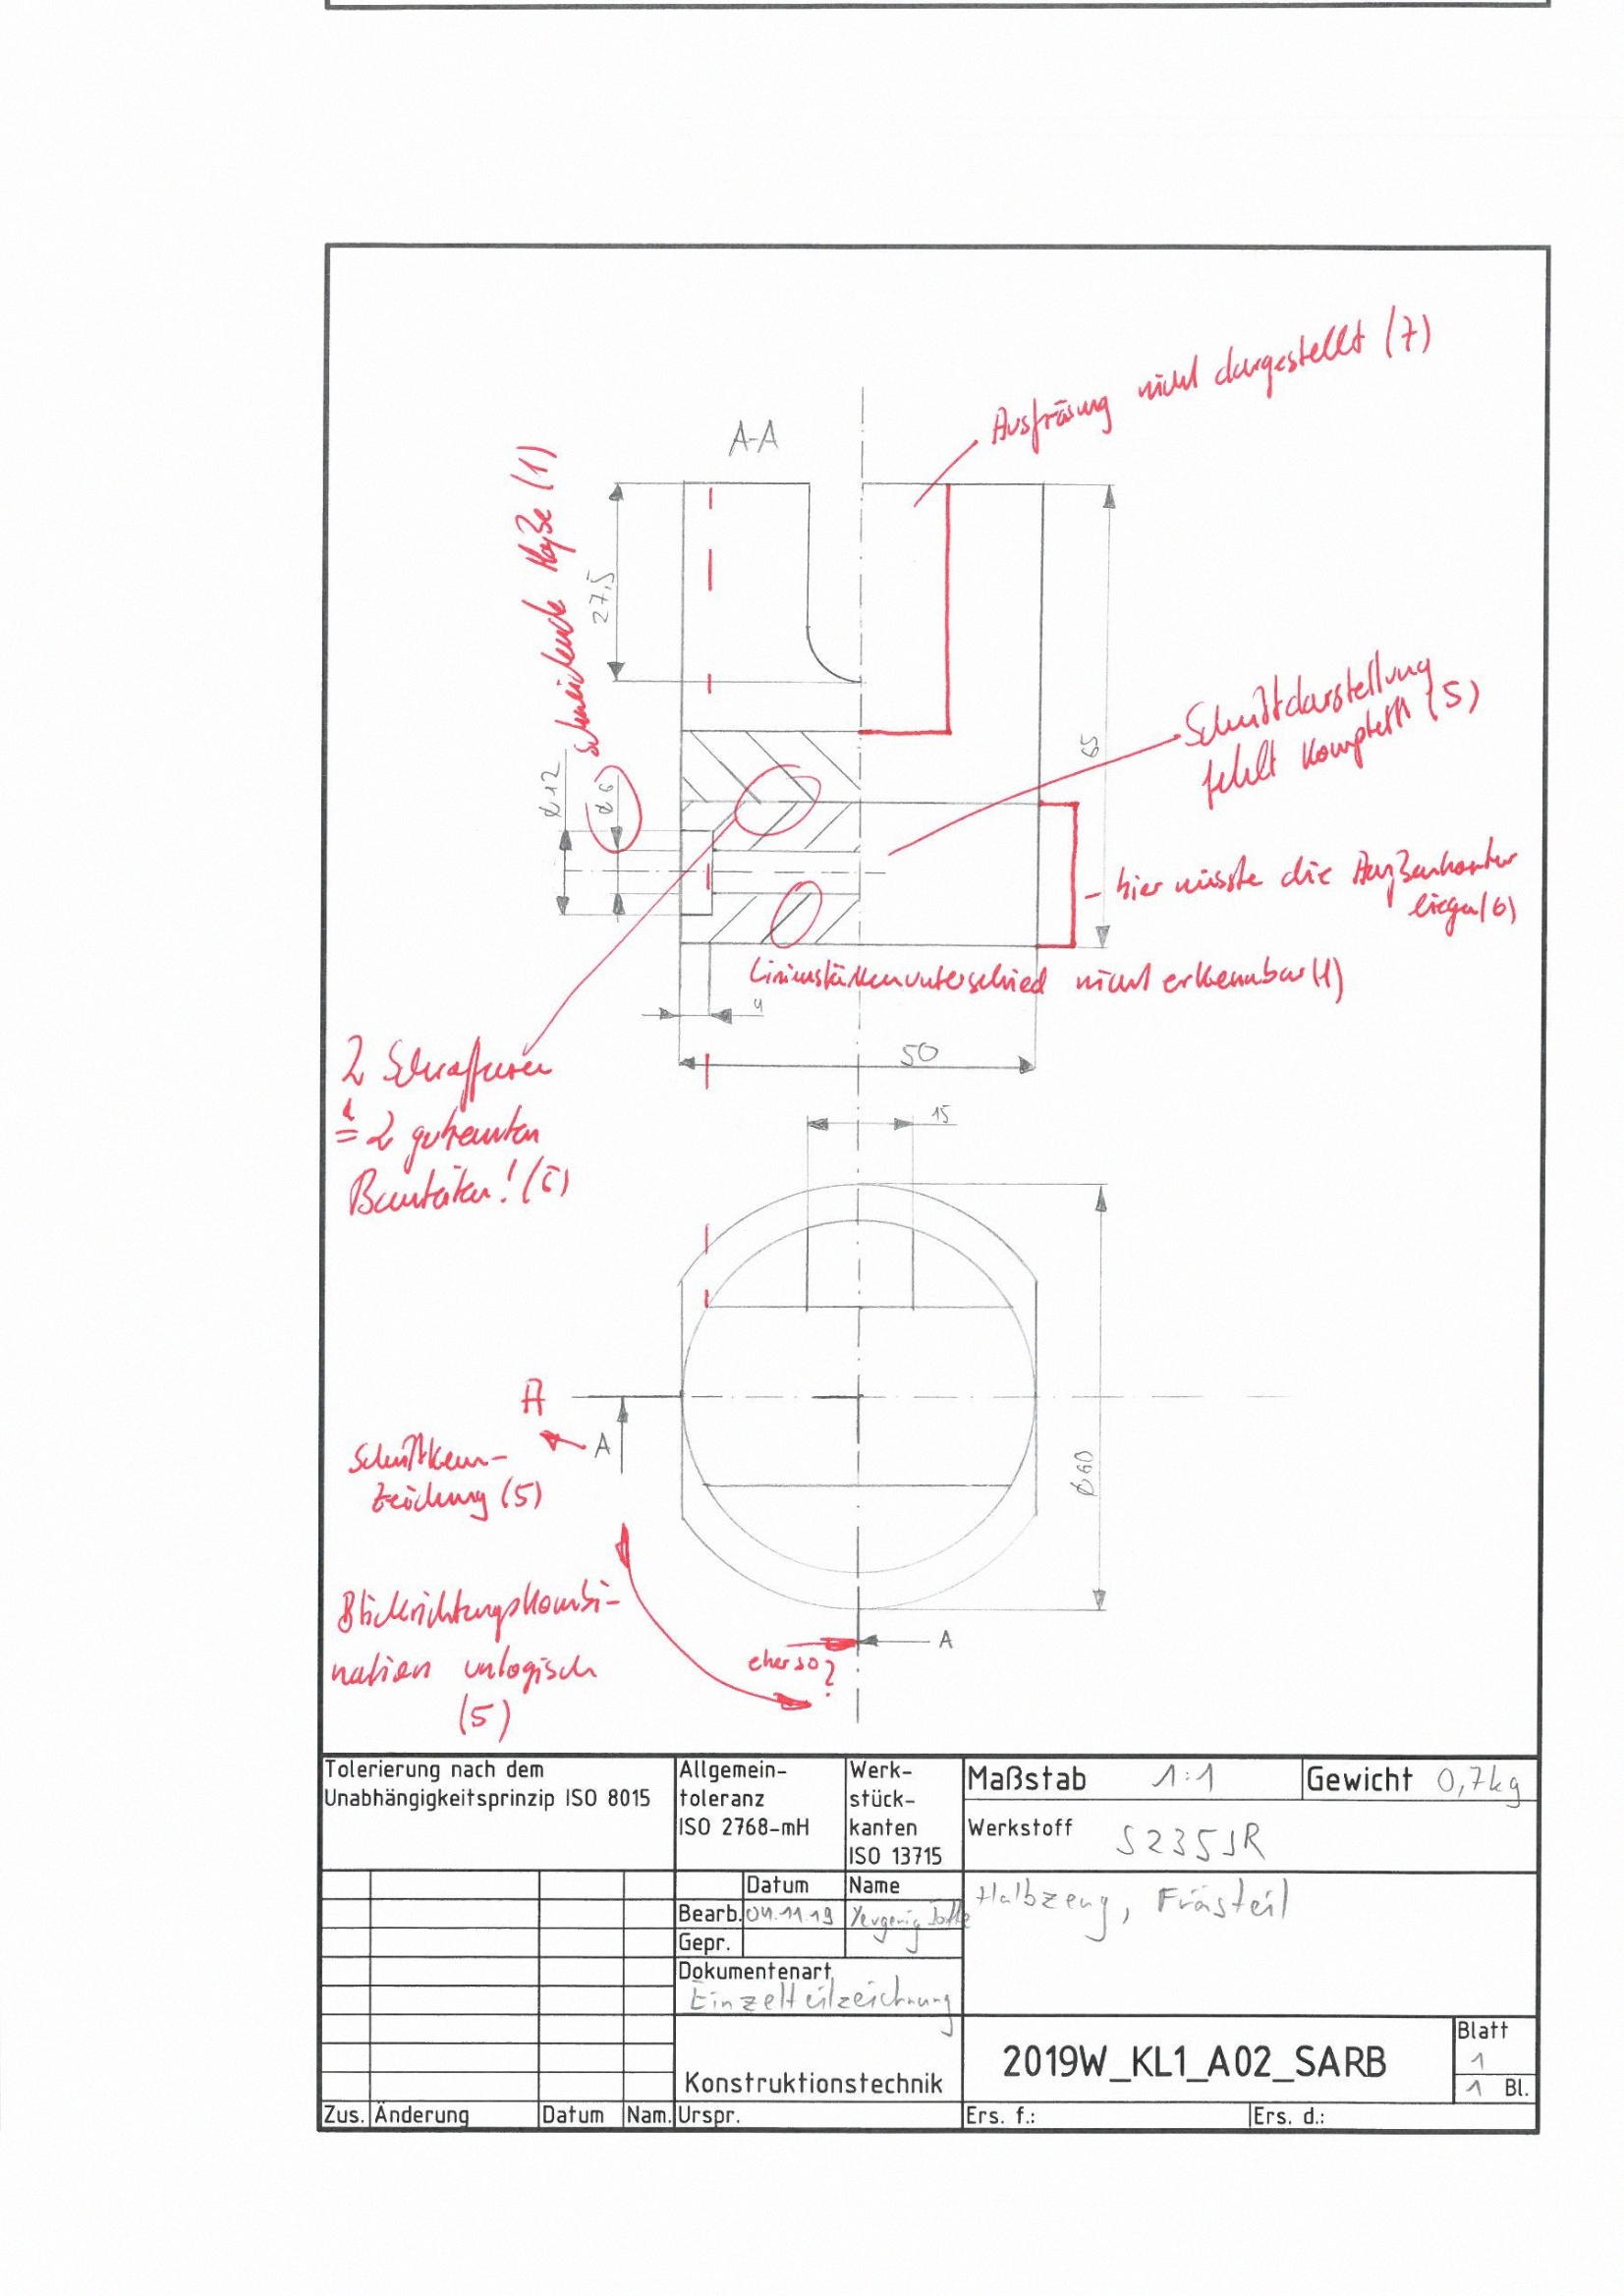 Ausfräsung nicht dargestellt (7)
A-A
schneidende Maße (1)
27,5
Schnittdarstellung
fehlt komplett (5)
65
⌀12
⌀6
- hier müsste die Außenkontur
liegen (6)
Linienstärkenunterschied nicht erkennbar (1)
4
2 Schraffuren
≙ 2 getrennten
Bauteilen! (6)
50
15
A
A
Schnittkenn-
zeichnung (5)
⌀60
Blickrichtungskombi-
nation unlogisch
(5)
A
eher so?
Tolerierung nach dem
Unabhängigkeitsprinzip ISO 8015
Allgemein-
toleranz
ISO 2768-mH
Werk-
stück-
kanten
ISO 13715
Maßstab 1:1
Gewicht 0,7kg
Werkstoff S235JR
Datum Name
Bearb. 04.11.19
Gepr.
Halbzeug, Frästeil
Dokumentenart
Einzelteilzeichnung
Konstruktionstechnik
2019W_KL1_A02_SARB
Blatt
1
1 Bl.
Zus. Änderung Datum Nam. Urspr. Ers. f.: Ers. d.: